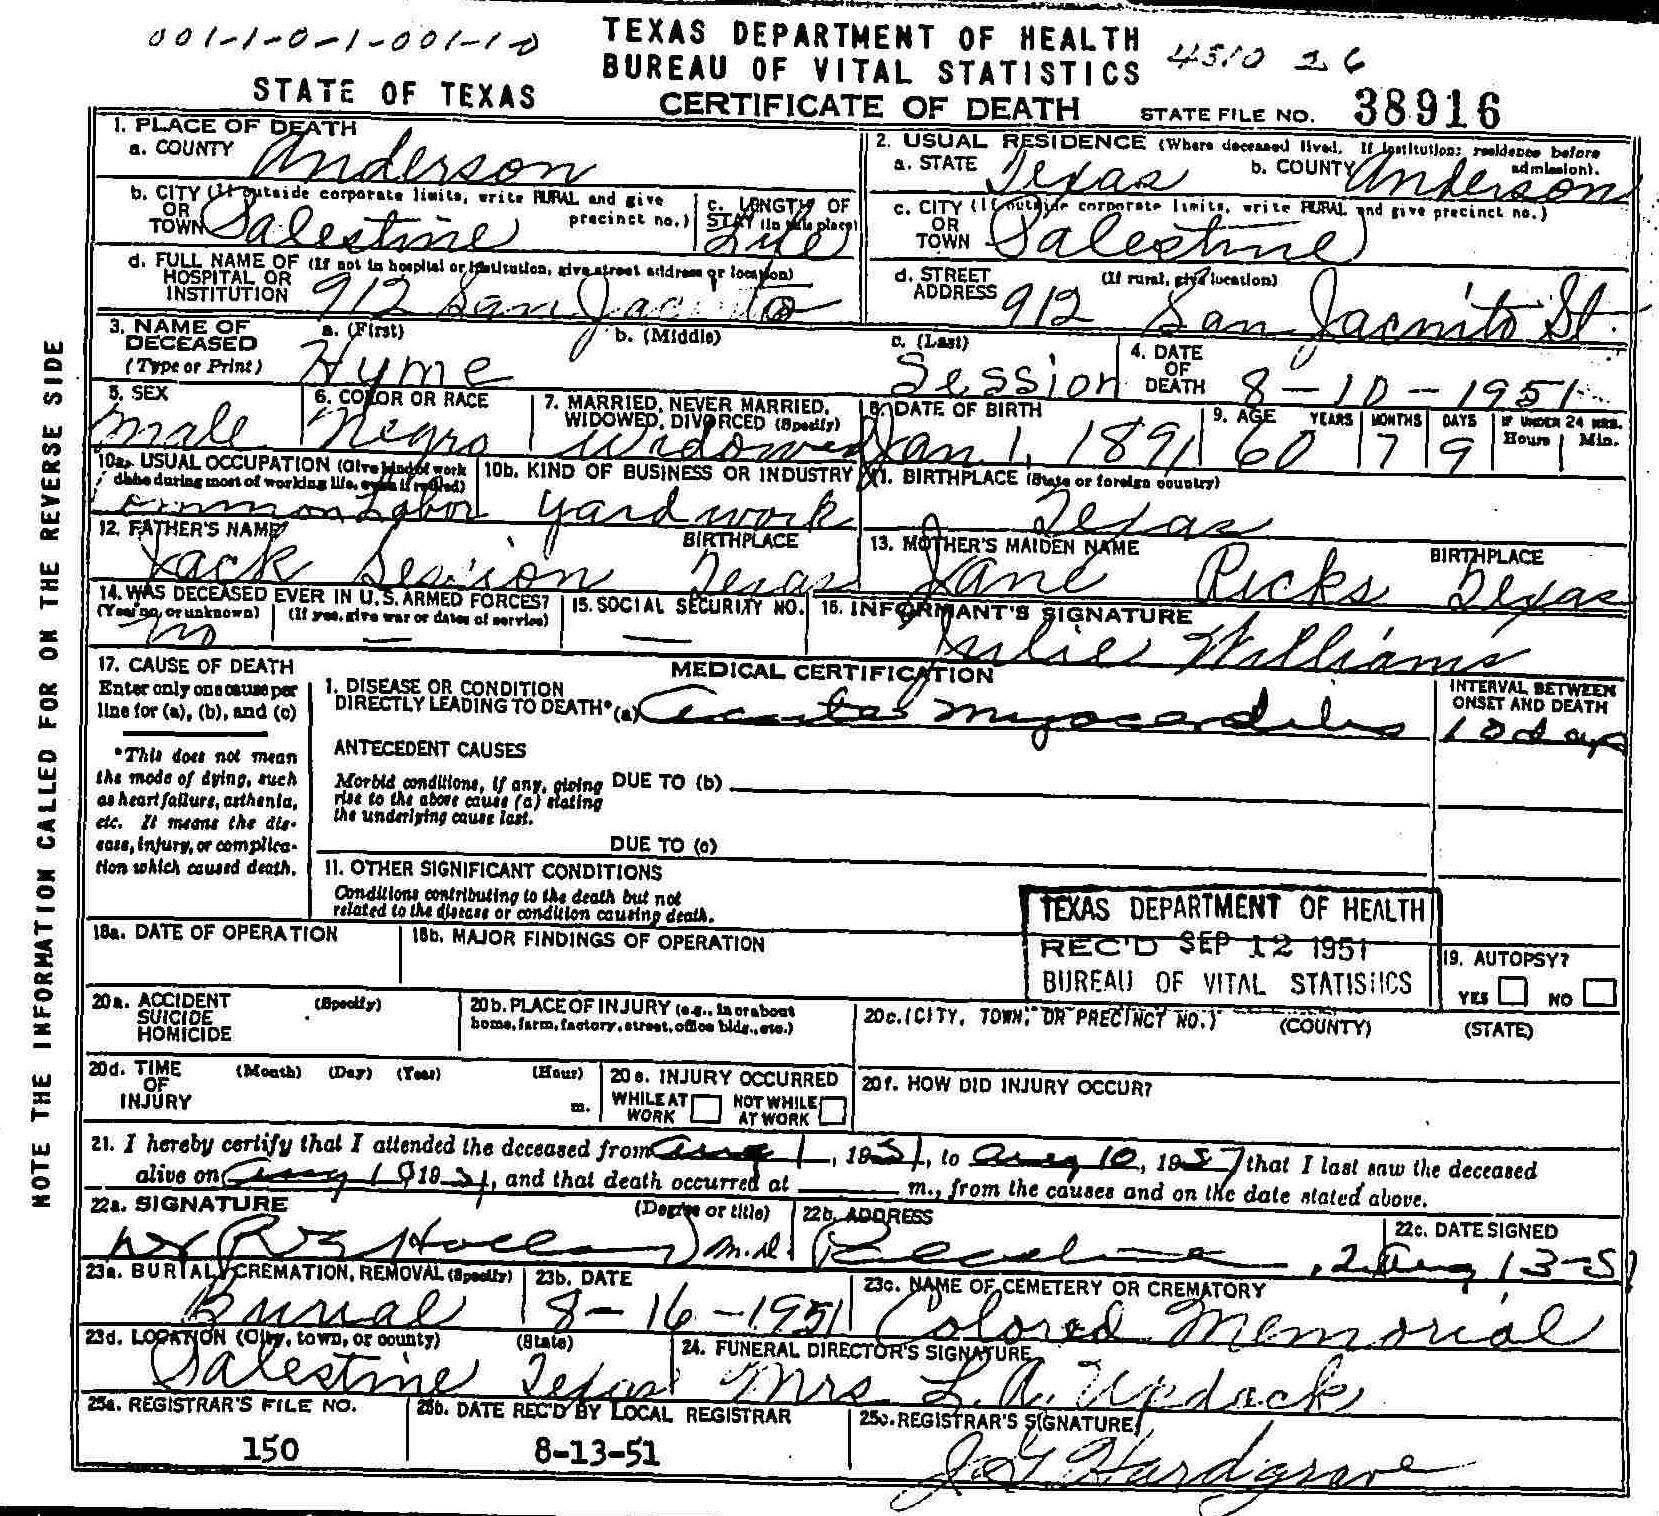 001-1-0-1-001-1-0
TEXAS DEPARTMENT OF HEALTH
BUREAU OF VITAL STATISTICS
4510 26
STATE OF TEXAS
CERTIFICATE OF DEATH
STATE FILE NO. 38916
NOTE THE INFORMATION CALLED FOR ON THE REVERSE SIDE
1. PLACE OF DEATH
a. COUNTY Anderson
2. USUAL RESIDENCE (Where deceased lived. If institution: residence before admission).
a. STATE Texas b. COUNTY Anderson
b. CITY (If outside corporate limits, write RURAL and give precinct no.)
OR
TOWN Palestine
c. LENGTH OF
STAY (in this place)
Life
c. CITY (If outside corporate limits, write RURAL and give precinct no.)
OR
TOWN Palestine
d. FULL NAME OF (If not in hospital or institution, give street address or location)
HOSPITAL OR
INSTITUTION 912 San Jacinto
d. STREET (If rural, give location)
ADDRESS 912 San Jacinto St.
3. NAME OF
DECEASED
(Type or Print)
a. (First) b. (Middle) c. (Last)
Hyme Session
4. DATE
OF
DEATH 8-10-1951
5. SEX
male
6. COLOR OR RACE
Negro
7. MARRIED, NEVER MARRIED,
WIDOWED, DIVORCED (Specify)
Widowed
8. DATE OF BIRTH
Jan 1, 1891
9. AGE YEARS MONTHS DAYS IF UNDER 24 HRS.
Hours Min.
60 7 9
10a. USUAL OCCUPATION (Give kind of work
done during most of working life, even if retired)
Common Labor
10b. KIND OF BUSINESS OR INDUSTRY
yard work
11. BIRTHPLACE (State or foreign country)
Texas
12. FATHER'S NAME BIRTHPLACE
Jack Session Texas
13. MOTHER'S MAIDEN NAME BIRTHPLACE
Jane Ricks Texas
14. WAS DECEASED EVER IN U.S. ARMED FORCES?
(Yes, no, or unknown) (If yes, give war or dates of service)
no —
15. SOCIAL SECURITY NO.
—
16. INFORMANT'S SIGNATURE
Julie Williams
17. CAUSE OF DEATH
Enter only one cause per
line for (a), (b), and (c)
*This does not mean
the mode of dying, such
as heart failure, asthenia,
etc. It means the dis-
ease, injury, or complica-
tion which caused death.
MEDICAL CERTIFICATION
I. DISEASE OR CONDITION
DIRECTLY LEADING TO DEATH* (a) Acute myocarditis
INTERVAL BETWEEN
ONSET AND DEATH
10 days
ANTECEDENT CAUSES
Morbid conditions, if any, giving
rise to the above cause (a) stating
the underlying cause last.
DUE TO (b)
DUE TO (c)
11. OTHER SIGNIFICANT CONDITIONS
Conditions contributing to the death but not
related to the disease or condition causing death.
TEXAS DEPARTMENT OF HEALTH
REC'D SEP 12 1951
BUREAU OF VITAL STATISTICS
18a. DATE OF OPERATION
18b. MAJOR FINDINGS OF OPERATION
19. AUTOPSY?
YES NO
20a. ACCIDENT (Specify)
SUICIDE
HOMICIDE
20b. PLACE OF INJURY (e.g., in or about
home, farm, factory, street, office bldg., etc.)
20c. (CITY, TOWN, OR PRECINCT NO.) (COUNTY) (STATE)
20d. TIME (Month) (Day) (Year) (Hour)
OF
INJURY m.
20e. INJURY OCCURRED
WHILE AT WORK NOT WHILE AT WORK
20f. HOW DID INJURY OCCUR?
21. I hereby certify that I attended the deceased from Aug 1, 1951, to Aug 10, 1951 that I last saw the deceased
alive on Aug 10 1951, and that death occurred at m., from the causes and on the date stated above.
22a. SIGNATURE (Degree or title)
M.D.
22b. ADDRESS
Palestine
22c. DATE SIGNED
Aug 13-51
23a. BURIAL, CREMATION, REMOVAL (Specify)
Burial
23b. DATE
8-16-1951
23c. NAME OF CEMETERY OR CREMATORY
Colored Memorial
23d. LOCATION (City, town, or county) (State)
Palestine Texas
24. FUNERAL DIRECTOR'S SIGNATURE
Mrs L.A. Updack
25a. REGISTRAR'S FILE NO.
150
25b. DATE REC'D BY LOCAL REGISTRAR
8-13-51
25c. REGISTRAR'S SIGNATURE
Hardgrave